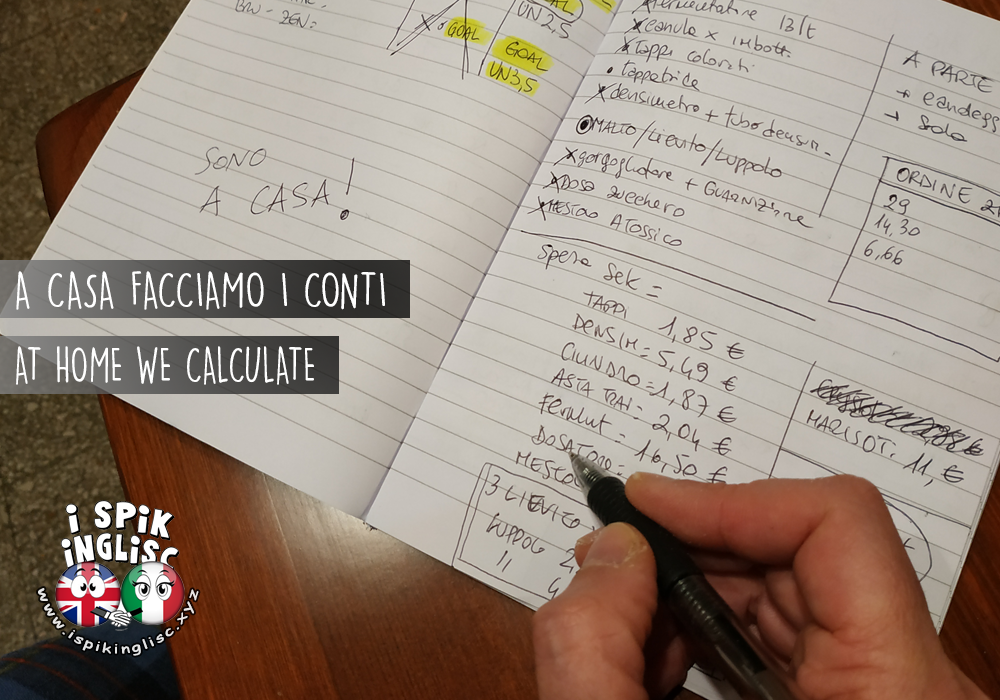 GOAL
UN 2,5
GOAL
UN 3,5
SONO
A CASA!
fermentatore 13/t
tappi colorati
tappatrice
densimetro + tubo densim.
MALTO/Lievito/Luppolo
gorgogliatore + GUARNIZIONE
DOSA zucchero
MESTOLO ATOSSICO
A PARTE
ORDINE
29
14,30
6,66
Spesa Sek =
TAPPI 1,85 €
DENSIM = 5,49 €
CILINDRO = 1,87 €
ASTA TRAV = 2,04 €
Ferment = 16,50 €
DOSATORE =
MESTO
3 LIEVITO
LUPPOLO 2
11
MARISOT. 11, €
A CASA FACCIAMO I CONTI
AT HOME WE CALCULATE
i SPiK
iNGLiSC
www.ispikinglisc.xyz